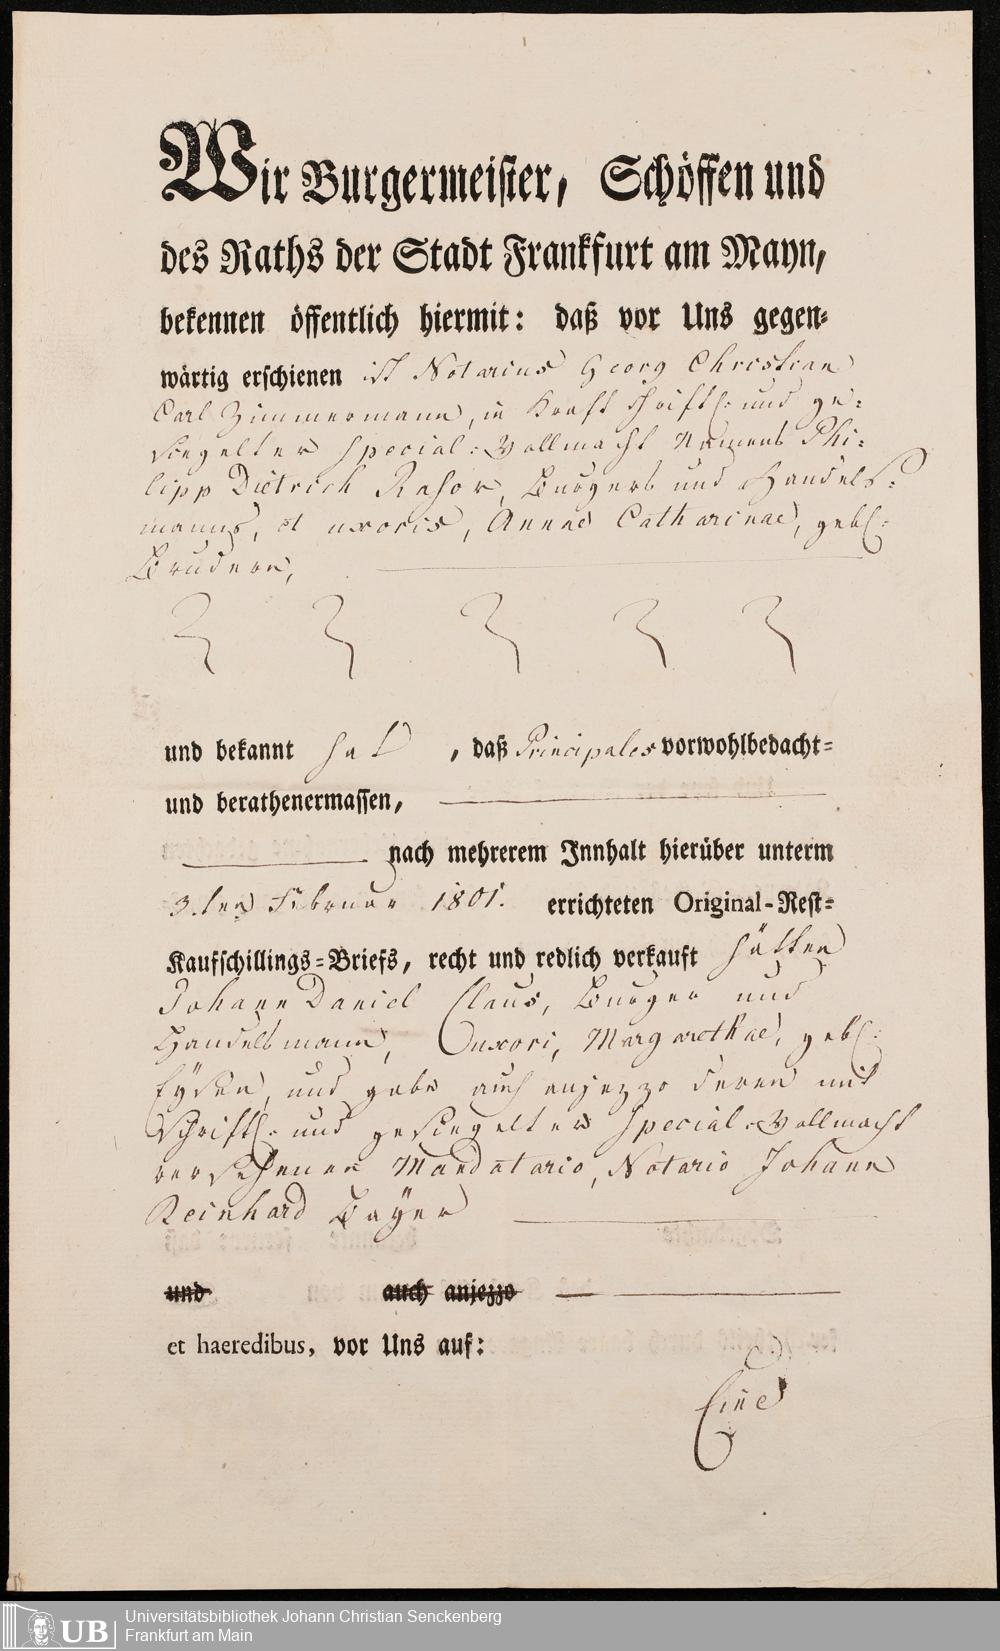 Wir Burgermeister, Schöffen und
des Raths der Stadt Frankfurt am Mayn,
bekennen öffentlich hiermit: daß vor Uns gegen-
wärtig erschienen ist Notarius Georg Christian
Carl Zimmermann, in Kraft schriftl: und ge-
siegelter special-Vollmacht Namens Phi-
lipp Dietrich Rasor, Burgers und Handels-
manns, et uxoris, Annae Catharinae, gebl:
Brudern,
und bekannt hat, daß Principales vorwohlbedacht-
und berathenermassen,
nach mehrerem Innhalt hierüber unterm
3.ten Februar 1801. errichteten Original-Rest-
Kaufschillings-Briefs, recht und redlich verkauft hätten
Johann Daniel Claus, Burger und
Handelsmann, uxori, Margarethae, gebl:
Eysen, und gabe auch anjezzo deren mit
schriftl: und gesiegelter special-Vollmacht
versehenen Mandatario, Notario Johann
Reinhard Bayer
und auch anjezzo
et haeredibus, vor Uns auf:
Eine
UB
Universitätsbibliothek Johann Christian Senckenberg
Frankfurt am Main